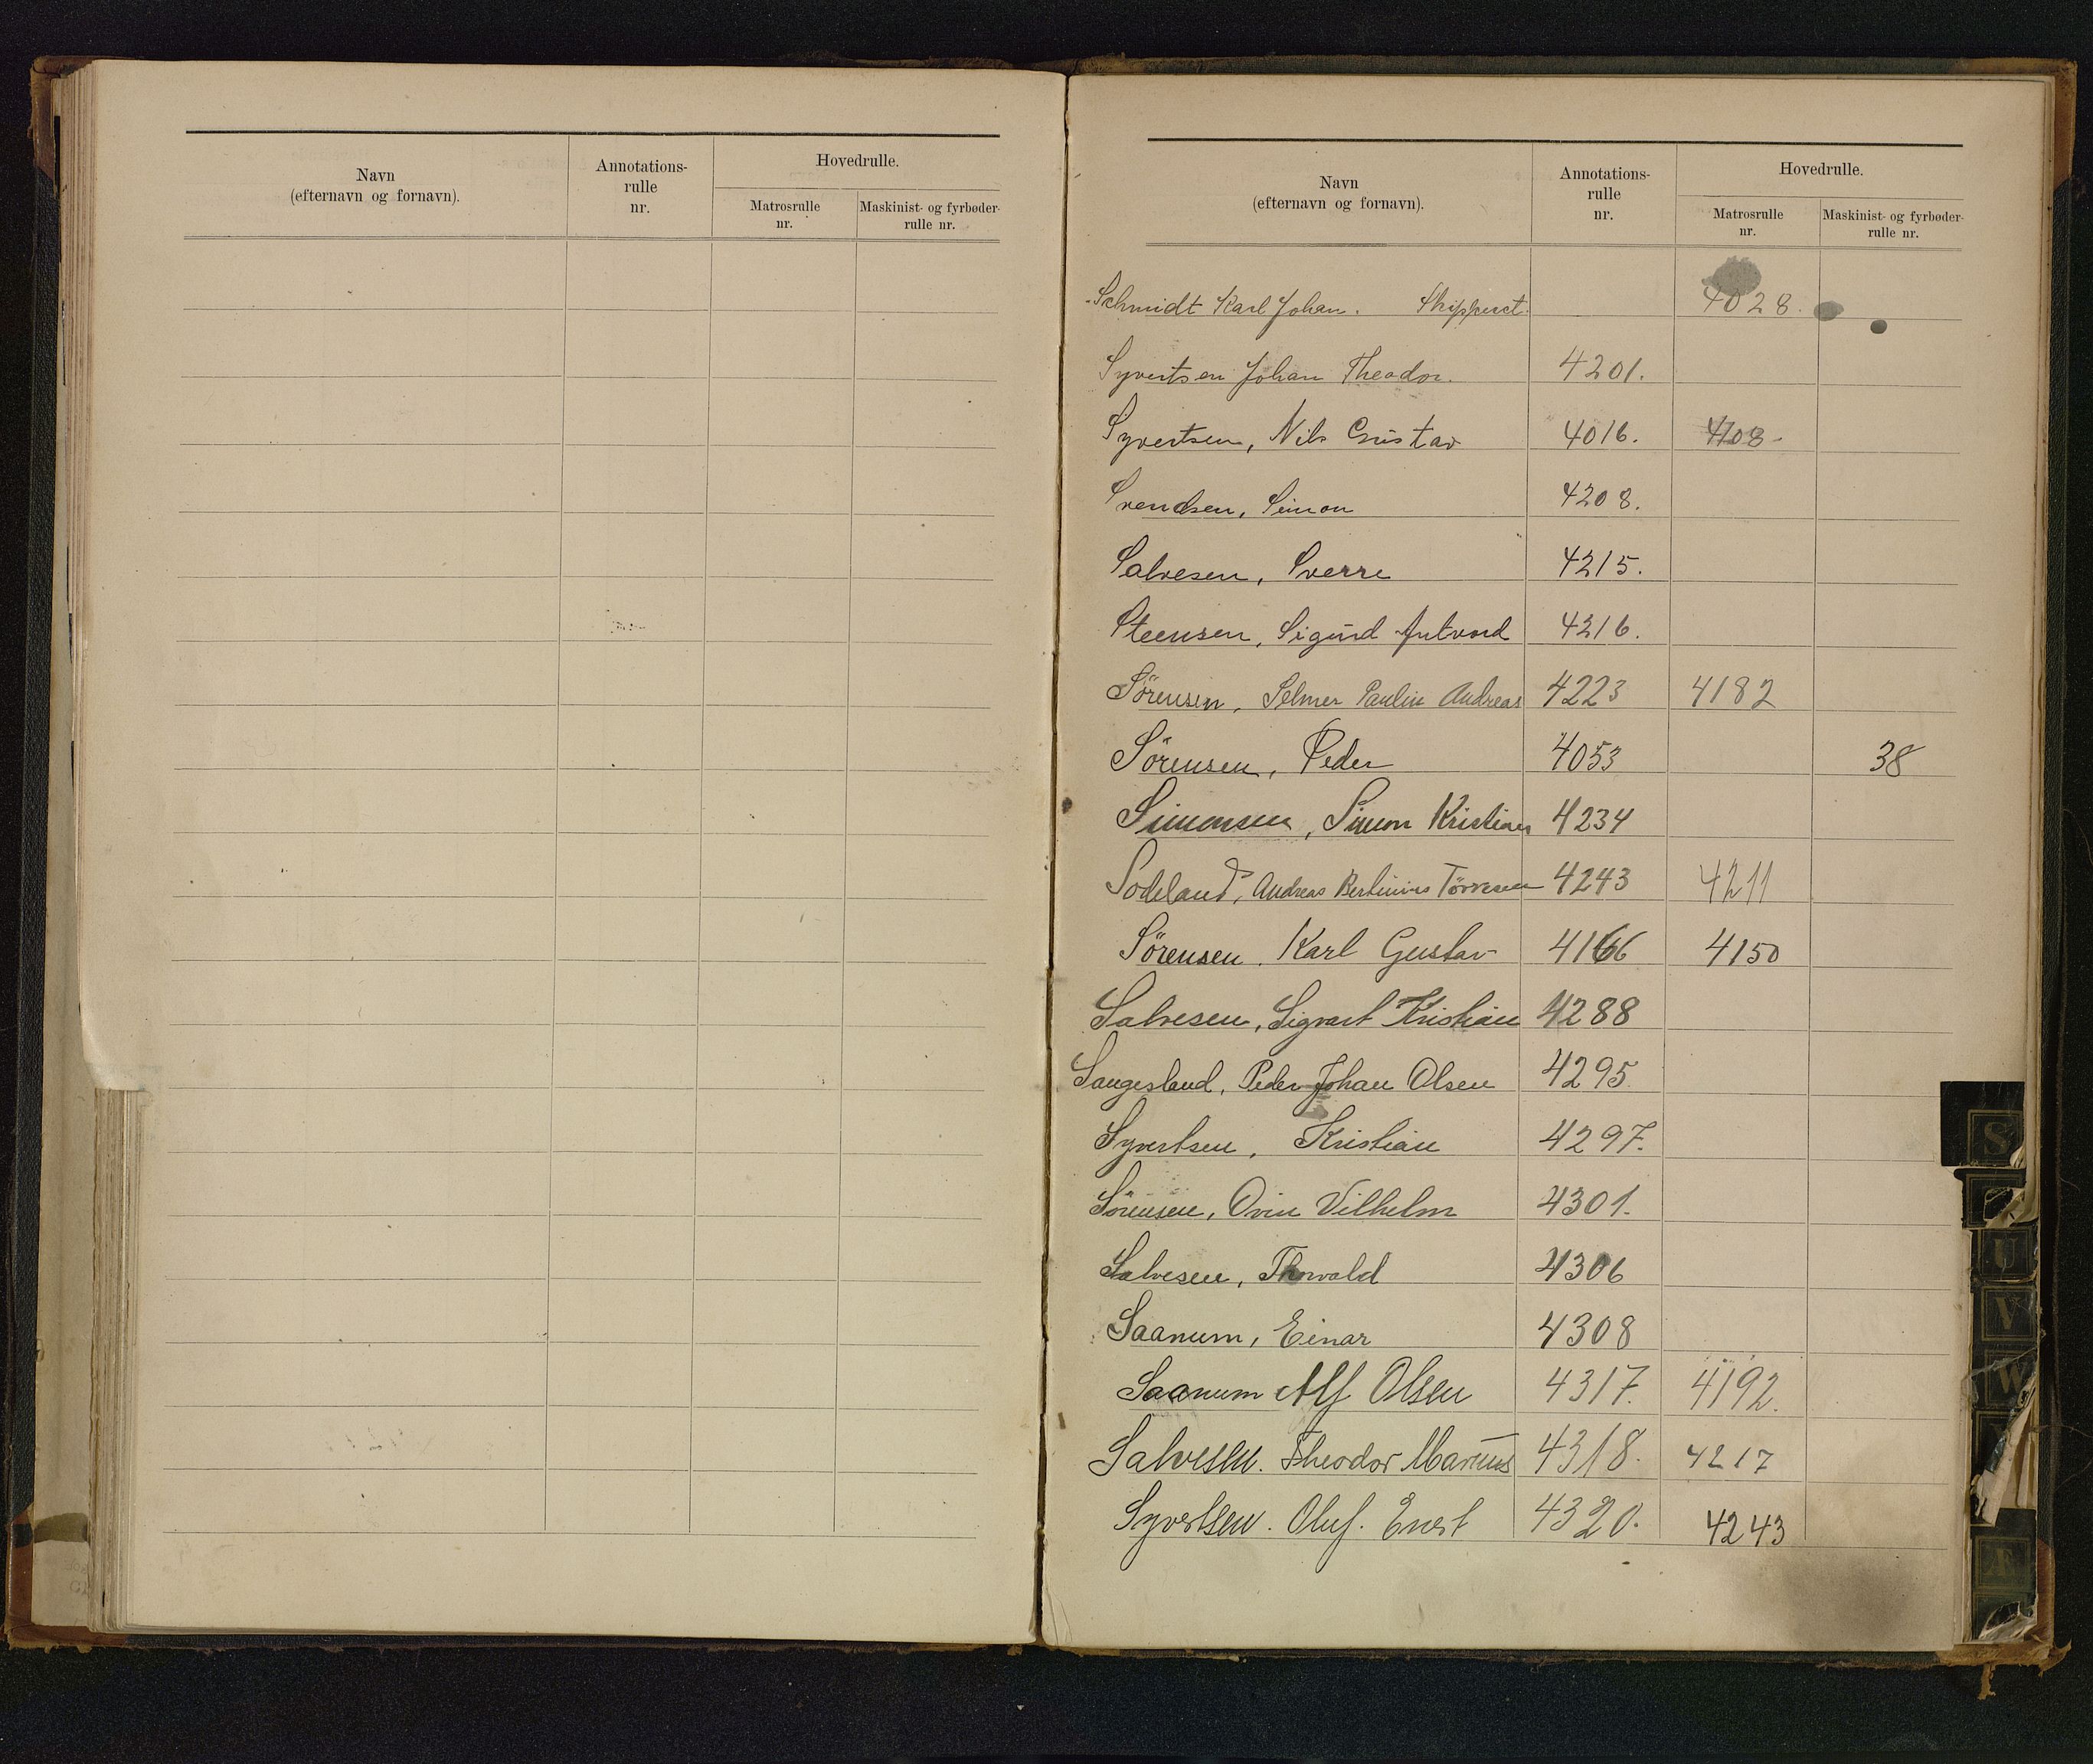 Navn
(efternavn og fornavn).
Annotations-
rulle
nr.
Hovedrulle.
Matrosrulle
nr.
Maskinist- og fyrbøder-
rulle nr.
Navn
(efternavn og fornavn).
Annotations-
rulle
nr.
Hovedrulle.
Matrosrulle
nr.
Maskinist- og fyrbøder-
rulle nr.
Schmidt Karl Johan. 4028.
Syvertsen Johan Theodor. 4201.
Syvertsen, Nils Gustav 4016. 4108
Svendsen, Simon 4208.
Salvesen, Sverre 4215.
Steensen, Sigurd 4216.
Sörensen, Selmer Paulin Andreas 4223 4182
Sörensen, Peder 4053 38
Simonsen, Simon Kristian 4234
Sodeland, Andreas Bertinius Törresen 4243 4211
Sörensen. Karl Gustav 4166 4150
Salvesen, Sigvart Kristian 4288
Sangesland, Peder Johan Olsen 4295
Syvertsen, Kristian 4297.
Sörensen, Vilhelm 4301.
Salvesen, Thorvald 4306
Saanum, Einar 4308
Saanum Alf Olsen 4317. 4192.
Salvesen. Theodor Marius 4318. 4217
Syvertsen. Oluf. 4320. 4243
S
U
V
W
Æ